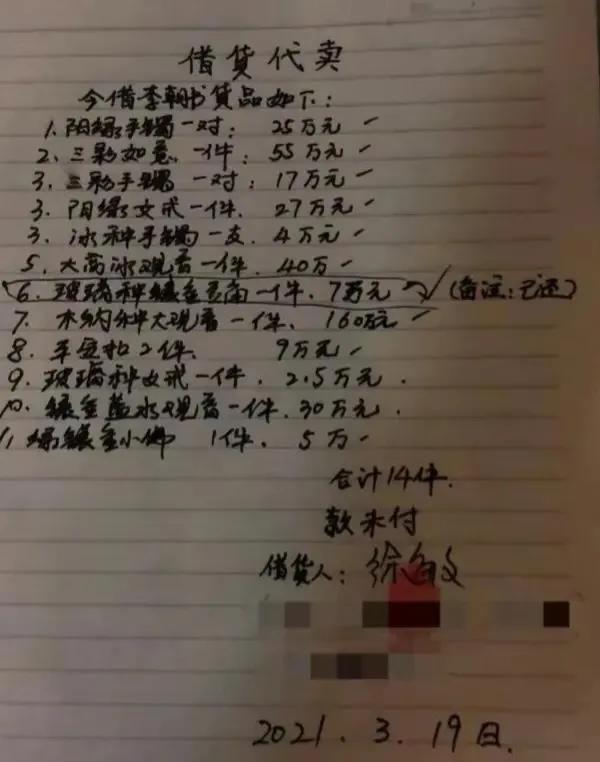 借货代卖
今借李朝书货品如下:
1. 阳绿手镯一对: 25万元
2. 三彩如意 一件: 55万元
3. 三彩手镯 一对: 17万元
3. 阳绿女戒一件. 27万元
3. 冰种手镯一支. 4万元
5. 大高冰观音一件. 40万
6. 玻璃种镶金豆角一件. 7万元 (备注:已还)
7. 木纳种大观音一件. 160万元
8. 平安扣2件. 9万元
9. 玻璃种女戒一件. 2.5万元.
10. 镶金蓝水观音一件. 30万元
11 绿镶金小佛 1件. 5万
合计14件.
款未付
借货人: 徐
2021. 3. 19日.